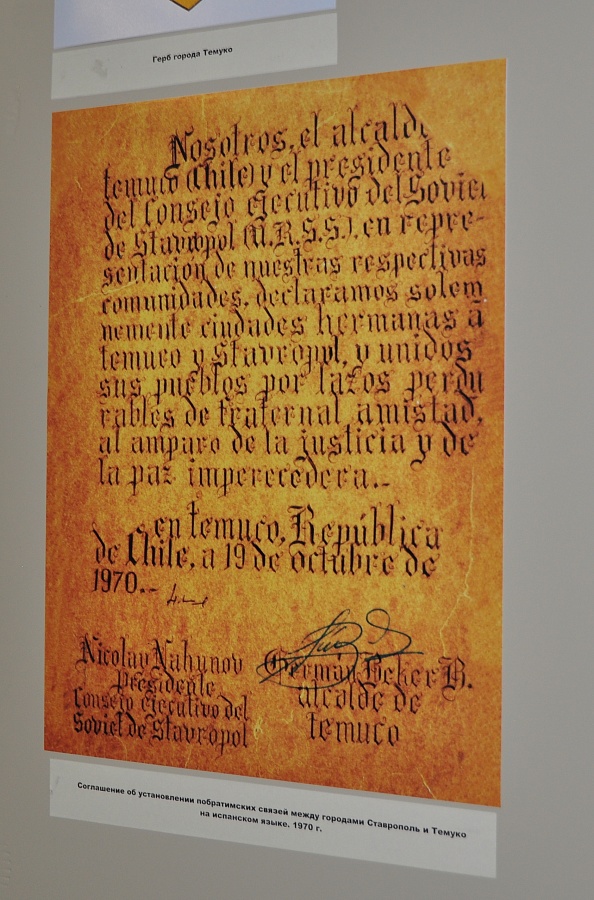 Герб города Темуко
Nosotros, el alcalde
temuco (Chile) y el presidente
del Consejo ejecutivo del Soviet
de Stavropol (U.R.S.S.), en repre-
sentación de nuestras respectivas
comunidades, declaramos solem
nemente ciudades hermanas a
temuco y Stavropol, y unidos
sus pueblos por lazos perdu
rables de fraternal amistad,
al amparo de la justicia y de
la paz imperecedera.-
en temuco, República
de Chile, a 19 de octubre de
1970.-
Nicolay Nahunov
Presidente
Consejo ejecutivo del
Soviet de Stavropol
Germán Beker B.
alcalde de
temuco
Соглашение об установлении побратимских связей между городами Ставрополь и Темуко
на испанском языке. 1970 г.